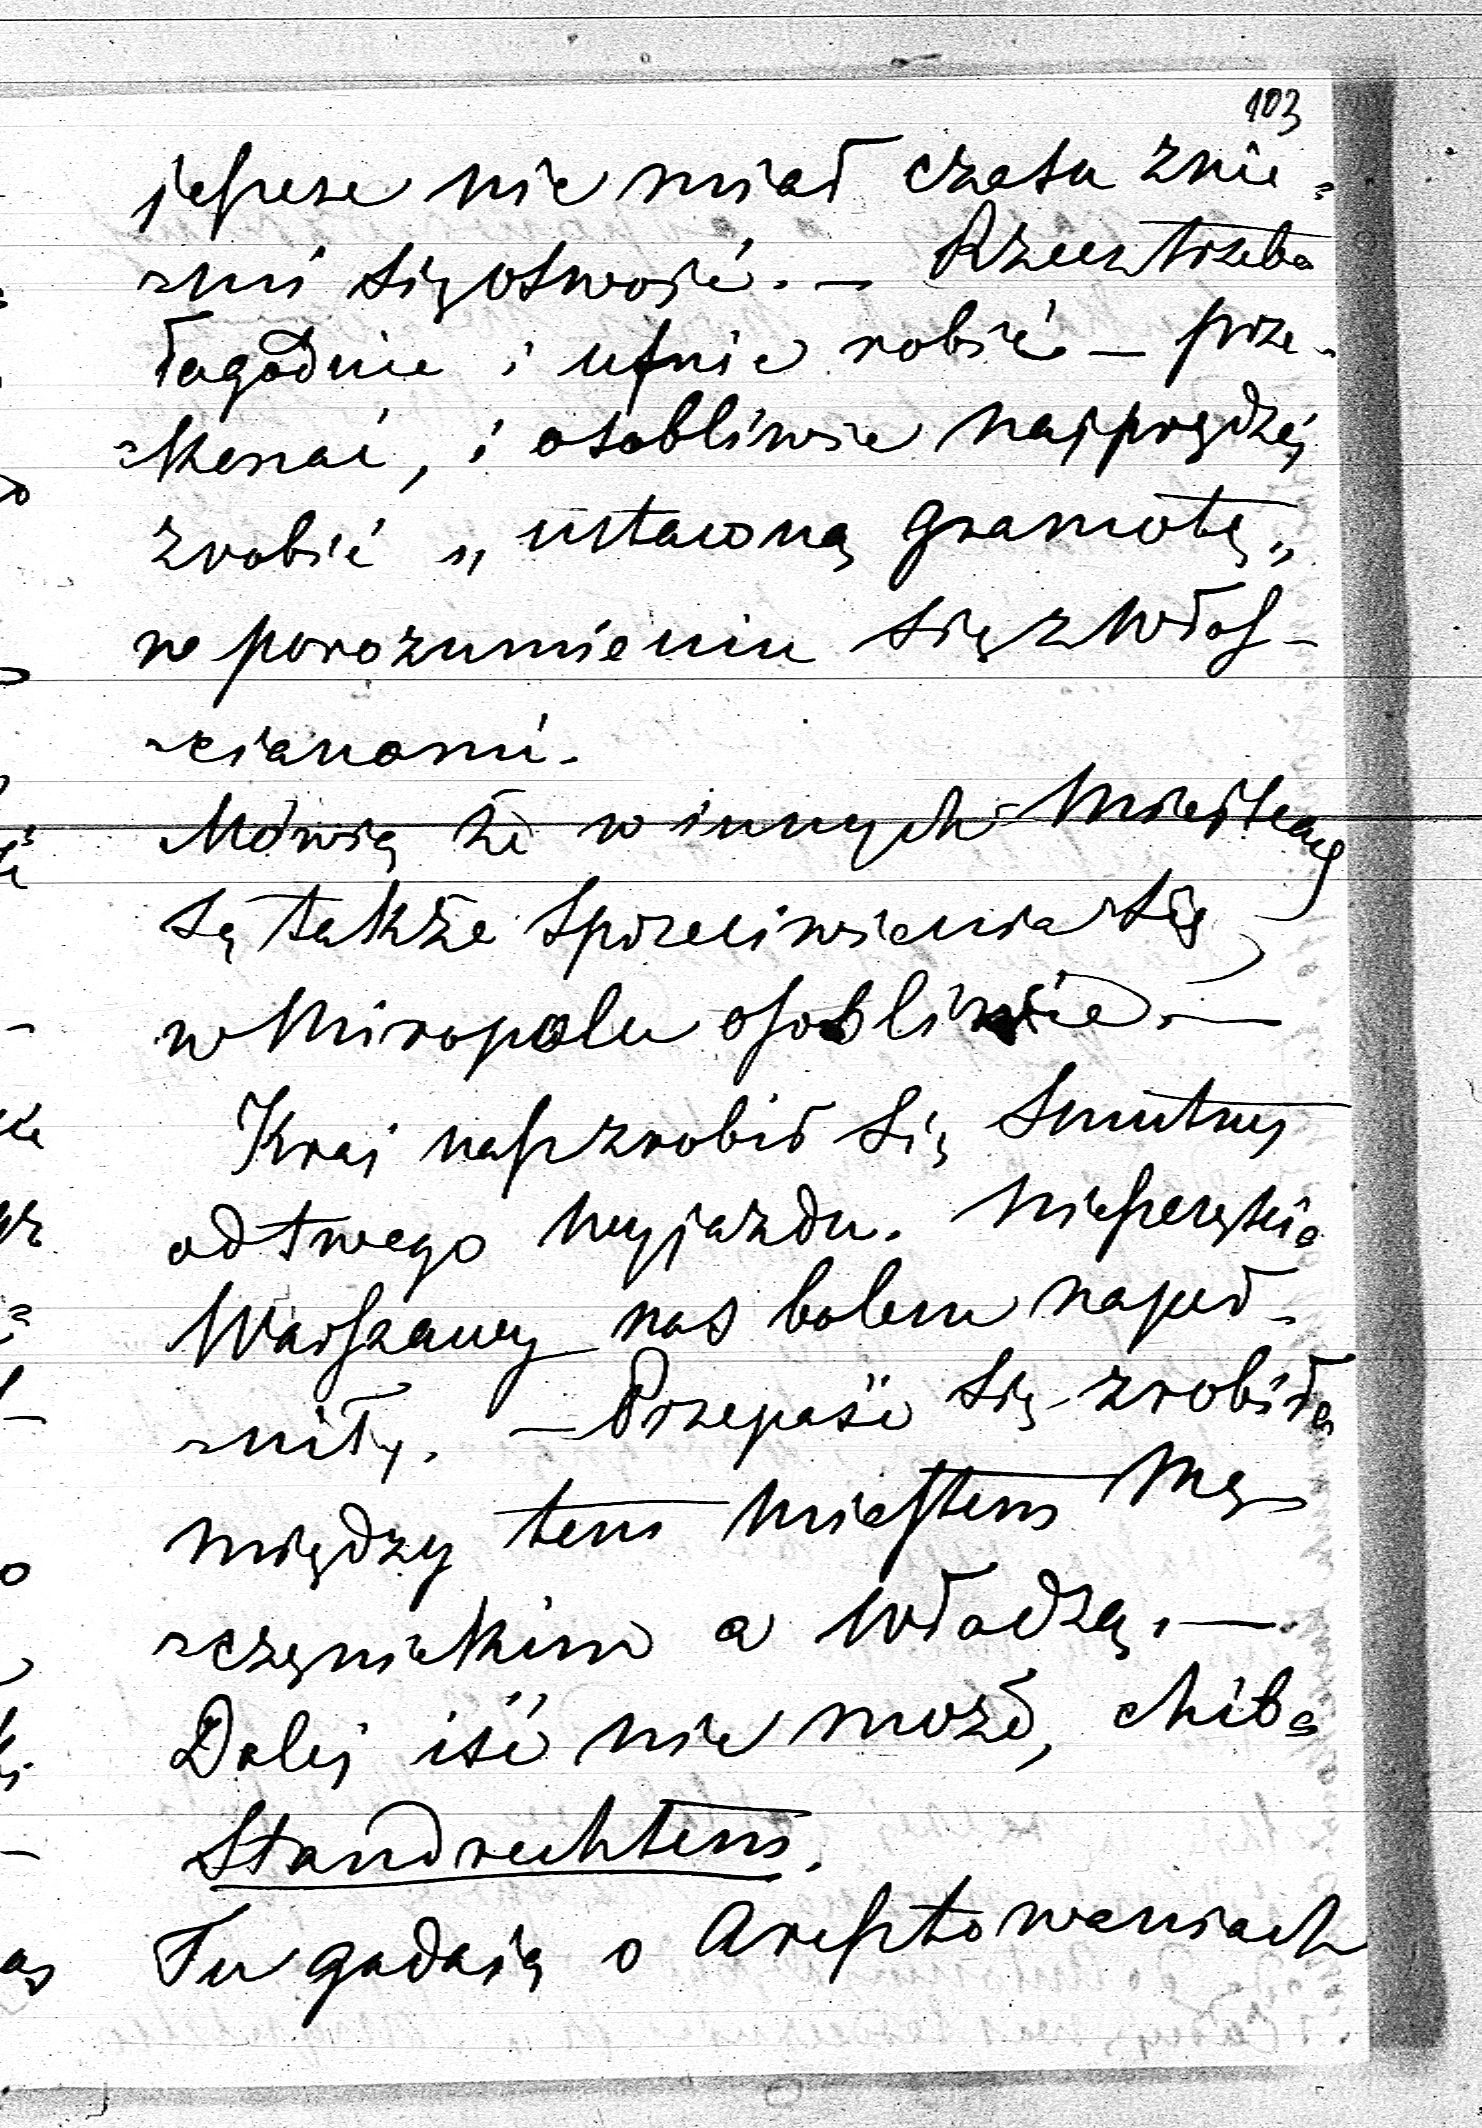 103
jeszcze nie miał czasu znie-
-mi się oswoić. — Rzecz trzeba
łagodnie i ufnie robić — prze-
-konać, i osobliwie najprędzéj
zrobić „ustawną gramotę„
w porozumieniu się z włoś-
-cianami.
Mówią że w innych miejscach
są także sprzeciwienia się
w Miropolu osobliwie. —
Kraj nasz zrobił się smutny
od twego wyjazdu. Nieszczęścia
Warszawy nas bolem napeł-
-niły. — Przepaść się zrobiła
między tem miastem mę-
-częnickim a władzą. —
Dalej iść nie może, chiba
Standrechtem.
Tu gadają o aresztowaniach